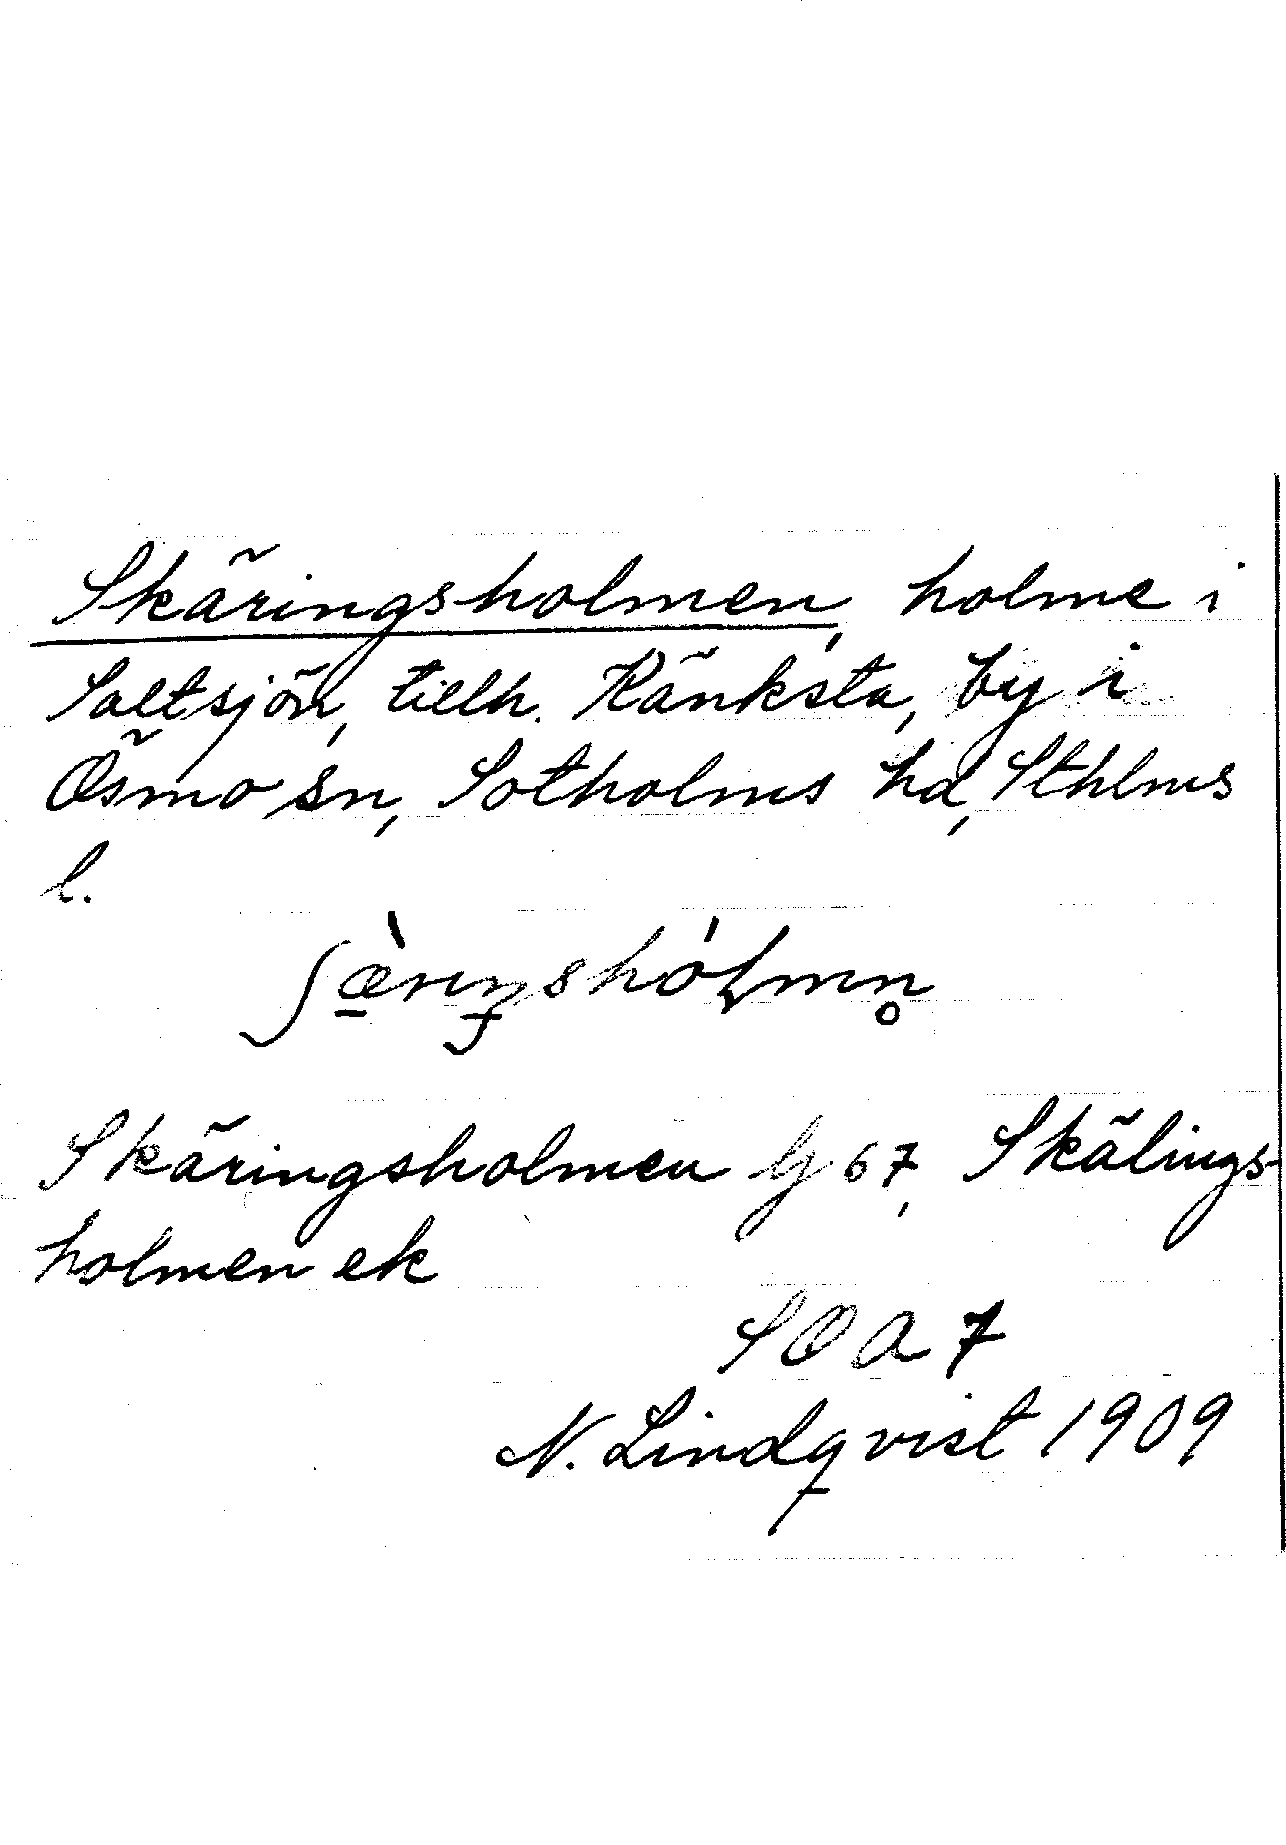 Skäringsholmen, holme i
Saltsjön, tillh. Ränksta, by i
Ösmo sn, Sotholms hd, Sthlms
l.
Skäringsholmen Gj 67, Skälings-
holmen ek
SOA 7
N. Lindqvist 1909